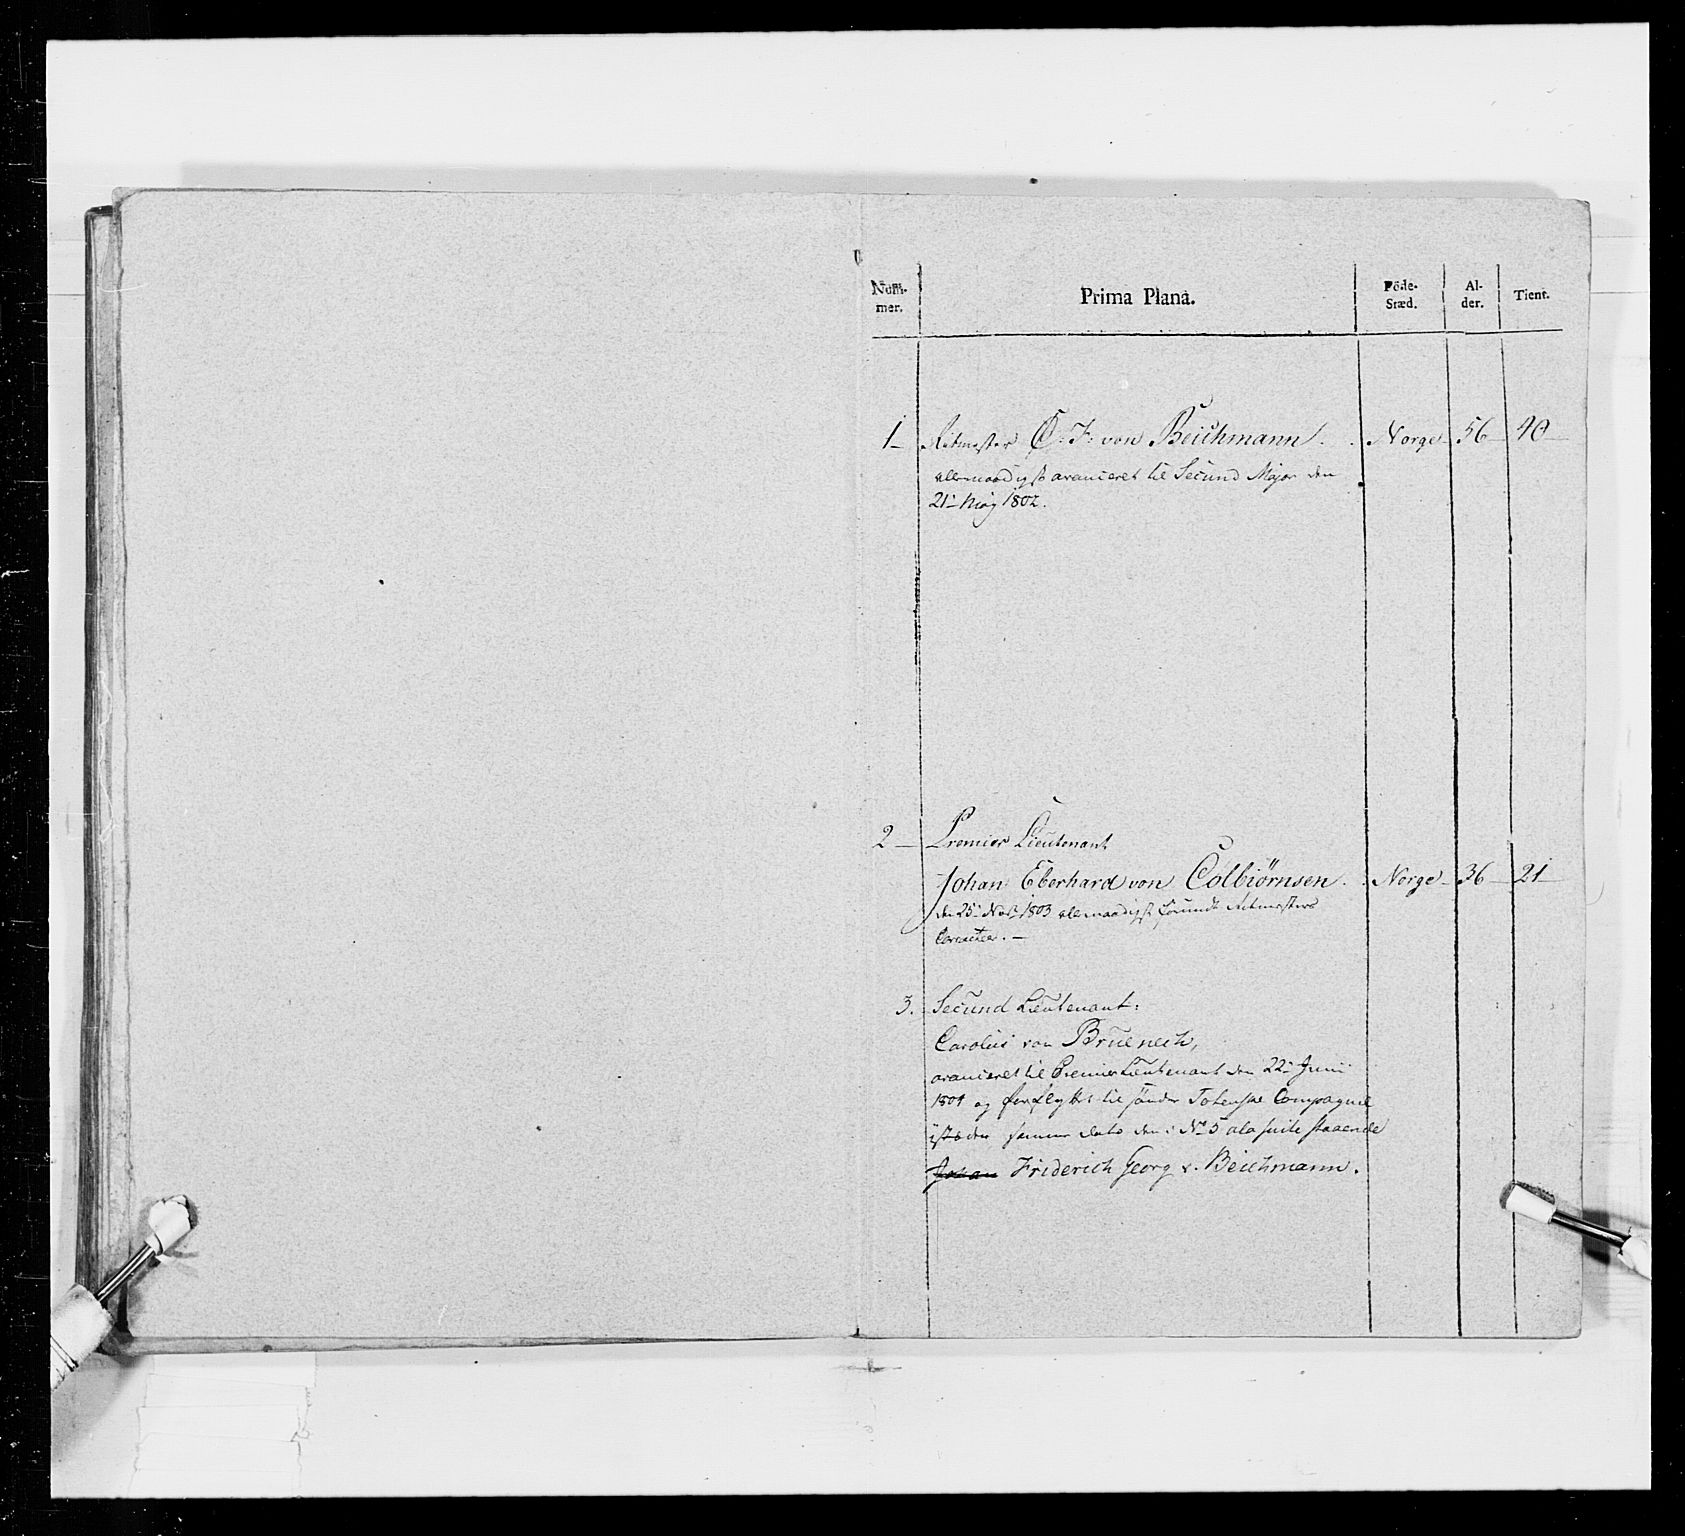 Num-
mer.
Prima Plana.
Föde-
Stæd.
Al-
der.
Tient.
1 Ritmester C: F: von Beichmann. Norge 56 40
allernaadigst avanceret til Secund Major den
21 May 1802.
2 Premier Lieutenant
Johan Eberhard von Colbiørnsen. Norge 36 21
den 25 1803 allernaadigst forundt Ritmesters
Caracteer.
3. Secund Lieutenant:
Carolus von Bruenech,
avanceret til Premier Lieutenant den 22 Juni
1804 og forflyttet til söndre Totenske Compagnie
istæden samme dato den i No 5 ala suite staaende
Johan Friderich Georg v. Beichmann.